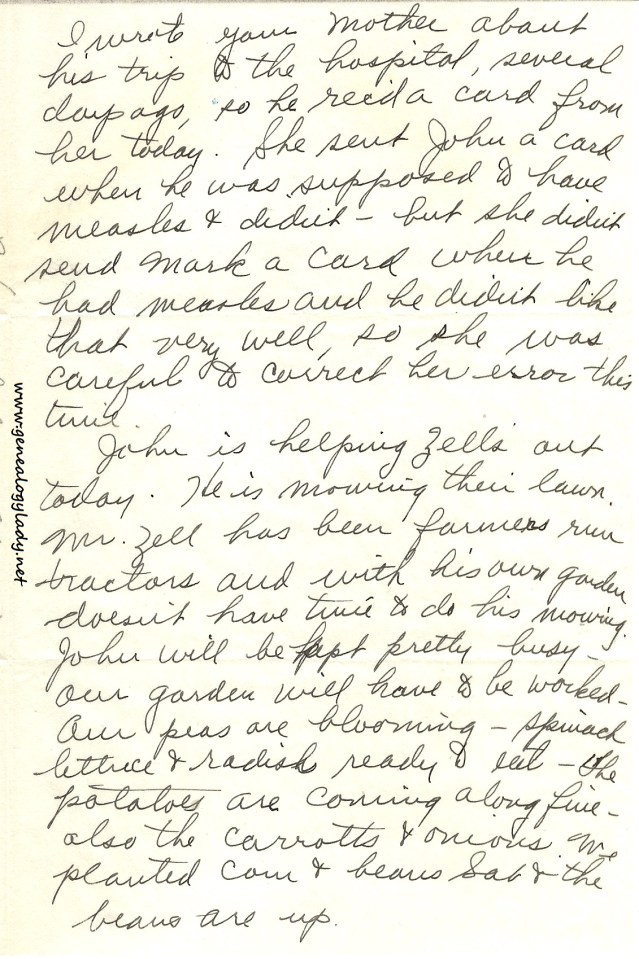 I wrote your Mother about
his trip to the hospital, several
days ago, so he rec'd a card from
her today. She sent John a card
when he was supposed to have
measles & didn't – but she didn't
send Mark a card when he
had measles and he didn't like
that very well, so she was
careful to correct her error this
time.
John is helping Zells out
today. He is mowing their lawn.
Mr. Zell has been farmers run
tractors and with his own garden
doesn't have time to do his mowing.
John will be kept pretty busy –
our garden will have to be worked –
Our peas are blooming – spinach
lettuce & radish ready to eat – the
potatoes are coming along fine –
also the carrotts & onions. We
planted corn & beans Sat & the
beans are up.
www.genealogylady.net